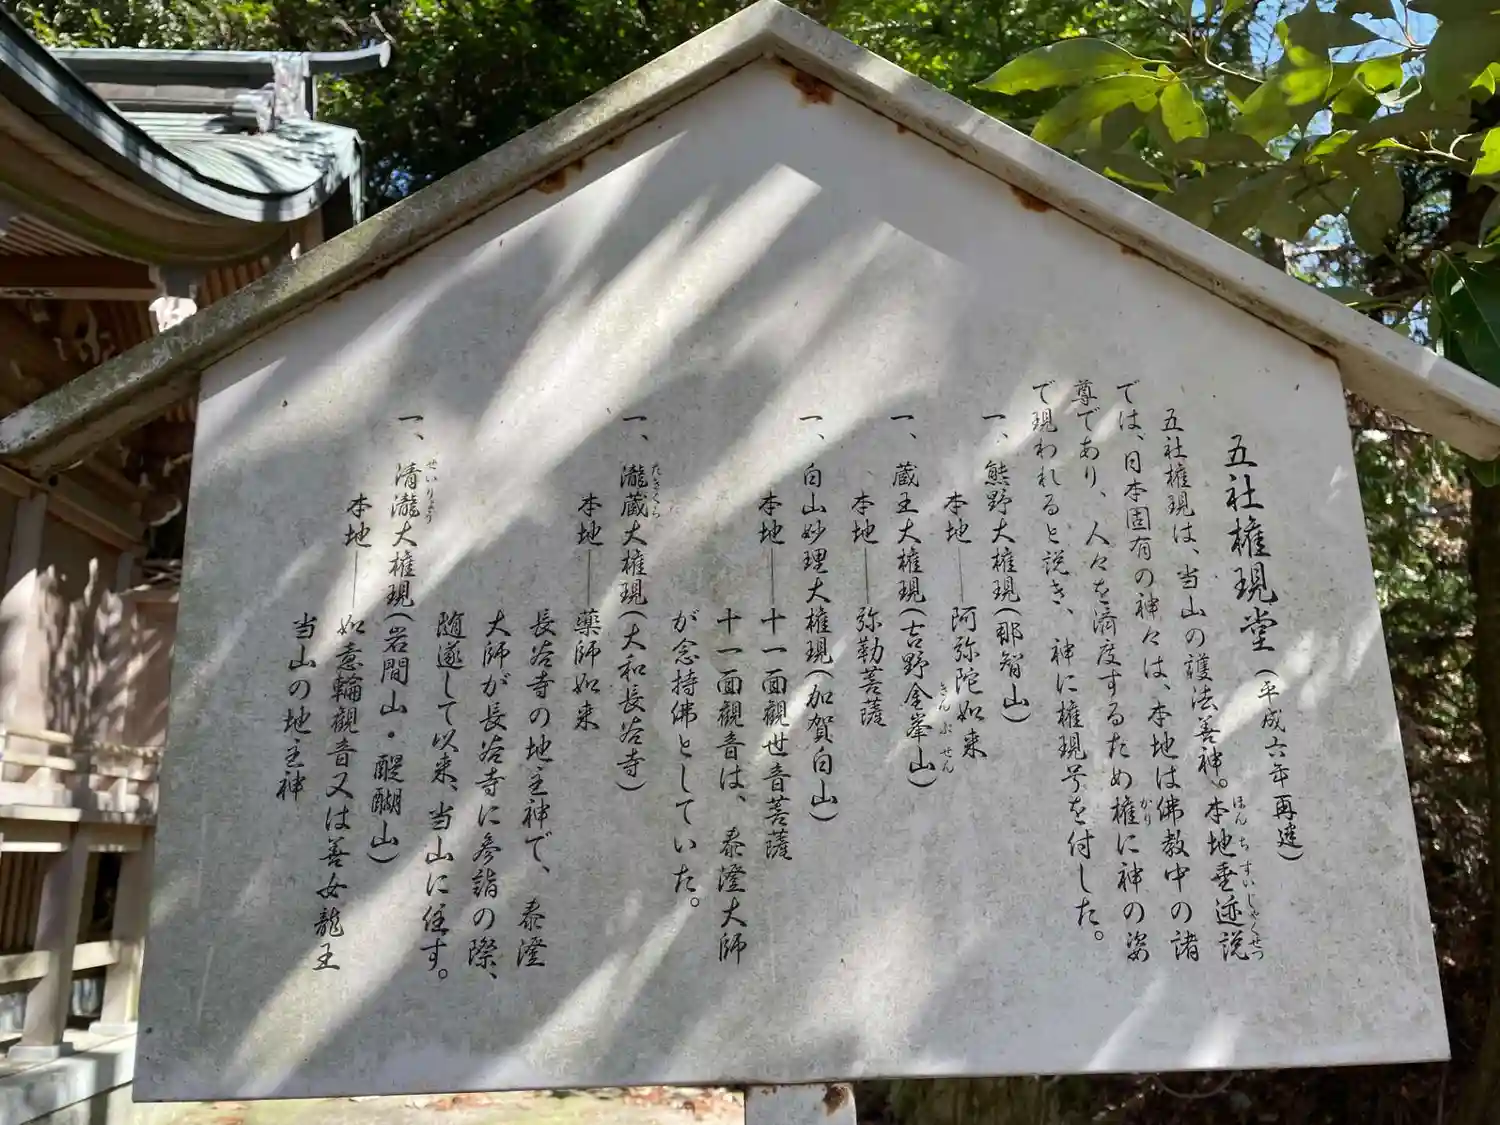 五社権現堂(平成六年再建)
五社権現は、当山の護法善神。本地垂迹説
では、日本固有の神々は、本地は佛教中の諸
尊であり、人々を済度するため権に神の姿
で現われると説き、神に権現号を付した。
一、熊野大権現(那智山)
本地――阿弥陀如来
一、蔵王大権現(吉野金峯山)
本地――弥勒菩薩
一、白山妙理大権現(加賀白山)
本地――十一面觀世音菩薩
十一面觀音は、泰澄大師
が念持佛としていた。
一、瀧蔵大権現(大和長谷寺)
本地――薬師如来
長谷寺の地主神で、泰澄
大師が長谷寺に参詣の際、
随遂して以来、当山に住す。
一、清瀧大権現(岩間山・醍醐山)
本地――如意輪觀音又は善女龍王
当山の地主神
ほんちすいじゃくせつ
かり
きんぷせん
たきくら
せいりょう